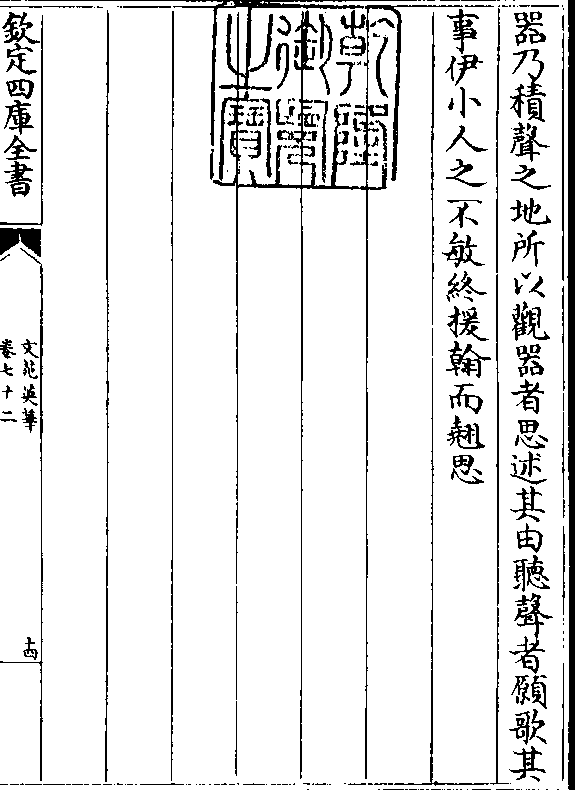 器乃積聲之地所以觀器者思述其由聽聲者願歌其
事伊小人之不敏終援翰而翹思
乾隆
御覽
之寶
欽定四庫全書
文苑英華
卷七十二
十四